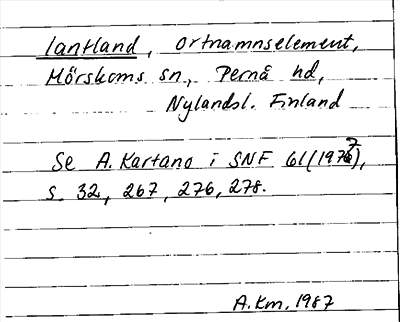 lantland, ortnamnselement,
Mörskoms sn., Pernå hd,
Nylandsl. Finland
Se A. Kartano i SNF 61 (1977),
s. 32, 267, 276, 278.
A.Km. 1987